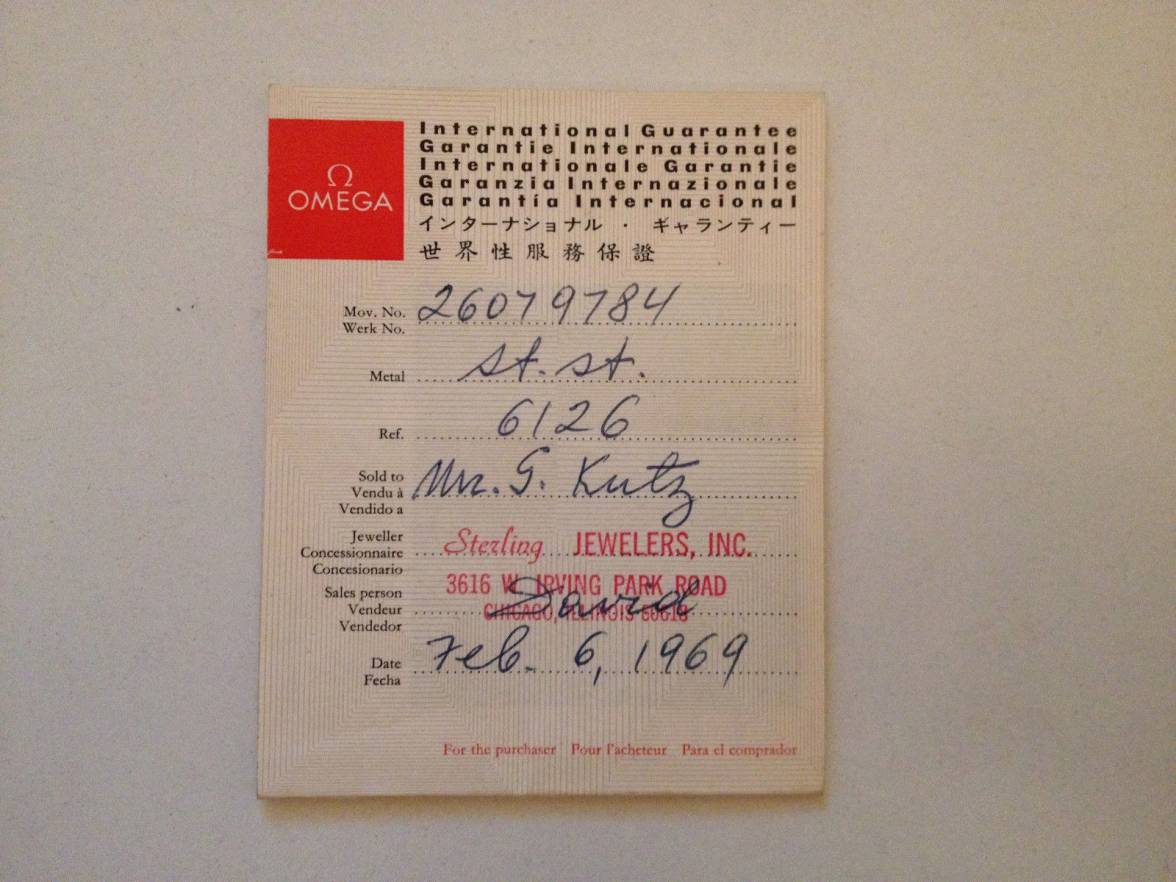 Ω
OMEGA
International Guarantee
Garantie Internationale
Internationale Garantie
Garanzia Internazionale
Garantía Internacional
インターナショナル・ギャランティー
世界性服務保證
Mov. No. 26079784
Werk No.
Metal st. st.
Ref. 6126
Sold to Mr. G. Kutz
Vendu à
Vendido a
Jeweller Sterling JEWELERS, INC.
Concessionnaire
Concesionario
3616 W. IRVING PARK ROAD
Sales person David
Vendeur CHICAGO, ILLINOIS 60618
Vendedor
Date Feb. 6, 1969
Fecha
For the purchaser Pour l'acheteur Para el comprador